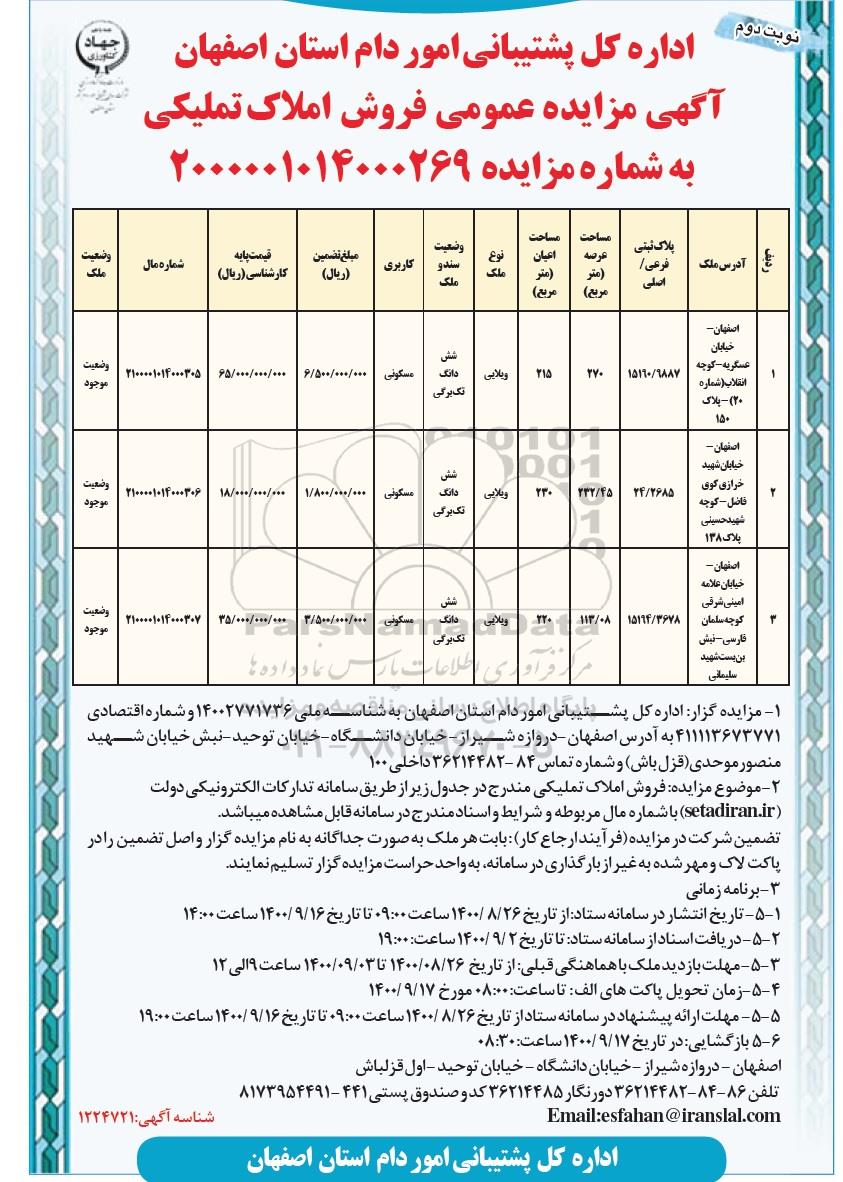 نوبت دوم
جهاد
کشاورزی
اداره کل پشتیبانی امور دام استان اصفهان
آگهی مزایده عمومی فروش املاک تملیکی
به شماره مزایده ۲۰۰۰۰۰۱۰۱۴۰۰۰۲۶۹
ردیف | آدرس ملک | پلاک ثبتی فرعی/ اصلی | مساحت عرصه (متر مربع) | مساحت اعیان (متر مربع) | نوع ملک | وضعیت سند و ملک | کاربری | مبلغ تضمین (ریال) | قیمت پایه کارشناسی (ریال) | شماره مال | وضعیت ملک
۱ | اصفهان – خیابان عسگریه – کوچه انقلاب (شماره ۲۰) – پلاک ۱۵۰ | ۱۵۱۹۰/۹۸۸۷ | ۲۷۰ | ۲۱۵ | ویلایی | شش دانگ تک‌برگی | مسکونی | ۶/۵۰۰/۰۰۰/۰۰۰ | ۶۵/۰۰۰/۰۰۰/۰۰۰ | ۲۱۰۰۰۰۱۰۱۴۰۰۰۳۰۵ | وضعیت موجود
۲ | اصفهان – خیابان شهید خرازی کوی فاضل – کوچه شهید حسینی پلاک ۱۳۸ | ۲۴/۲۶۸۵ | ۲۳۲/۴۵ | ۲۳۰ | ویلایی | شش دانگ تک‌برگی | مسکونی | ۱/۸۰۰/۰۰۰/۰۰۰ | ۱۸/۰۰۰/۰۰۰/۰۰۰ | ۲۱۰۰۰۰۱۰۱۴۰۰۰۳۰۶ | وضعیت موجود
۳ | اصفهان – خیابان علامه امینی شرقی کوچه سلمان فارسی – نبش بن‌بست شهید سلیمانی | ۱۵۱۹۴/۳۶۷۸ | ۱۱۳/۰۸ | ۲۲۰ | ویلایی | شش دانگ تک‌برگی | مسکونی | ۳/۵۰۰/۰۰۰/۰۰۰ | ۳۵/۰۰۰/۰۰۰/۰۰۰ | ۲۱۰۰۰۰۱۰۱۴۰۰۰۳۰۷ | وضعیت موجود
ParsNamadData
مرکز فرآوری اطلاعات پارس نماد داده ها
۱- مزایده گزار: اداره کل پشتیبانی امور دام استان اصفهان به شناسه ملی ۱۴۰۰۲۷۷۱۷۳۶ و شماره اقتصادی
۴۱۱۱۱۳۶۷۳۷۷۱ به آدرس اصفهان – دروازه شیراز – خیابان دانشگاه – خیابان توحید – نبش خیابان شهید
منصور موحدی (قزل باش) و شماره تماس ۸۴ - ۳۶۲۱۴۴۸۲ داخلی ۱۰۰
۲- موضوع مزایده: فروش املاک تملیکی مندرج در جدول زیر از طریق سامانه تدارکات الکترونیکی دولت
(setadiran.ir) با شماره مال مربوطه و شرایط و اسناد مندرج در سامانه قابل مشاهده میباشد.
تضمین شرکت در مزایده (فرآیند ارجاع کار): بابت هر ملک به صورت جداگانه به نام مزایده گزار و اصل تضمین را در
پاکت لاک و مهر شده به غیر از بارگذاری در سامانه، به واحد حراست مزایده گزار تسلیم نمایند.
۳- برنامه زمانی
۵-۱- تاریخ انتشار در سامانه ستاد: از تاریخ ۱۴۰۰/ ۸/۲۶ ساعت ۰۹:۰۰ تا تاریخ ۱۴۰۰/ ۹/۱۶ ساعت ۱۴:۰۰
۵-۲- دریافت اسناد از سامانه ستاد: تا تاریخ ۱۴۰۰/ ۹/۲ ساعت: ۱۹:۰۰
۵-۳- مهلت بازدید ملک با هماهنگی قبلی: از تاریخ ۱۴۰۰/۰۸/۲۶ تا ۱۴۰۰/۰۹/۰۳ ساعت ۹ الی ۱۲
۵-۴- زمان تحویل پاکت های الف: تا ساعت: ۰۸:۰۰ مورخ ۱۴۰۰/ ۹/۱۷
۵-۵- مهلت ارائه پیشنهاد در سامانه ستاد از تاریخ ۱۴۰۰/ ۸/۲۶ ساعت ۰۹:۰۰ تا تاریخ ۱۴۰۰/ ۹/۱۶ ساعت ۱۹:۰۰
۵-۶ بازگشایی: در تاریخ ۱۴۰۰/ ۹/۱۷ ساعت: ۰۸:۳۰
اصفهان – دروازه شیراز – خیابان دانشگاه – خیابان توحید – اول قزلباش
تلفن ۸۶-۸۴-۳۶۲۱۴۴۸۲ دورنگار ۳۶۲۱۴۴۸۵ کد و صندوق پستی ۴۴۱ - ۸۱۷۳۹۵۴۴۹۱
Email:esfahan@iranslal.com
شناسه آگهی: ۱۲۲۴۷۲۱
اداره کل پشتیبانی امور دام استان اصفهان